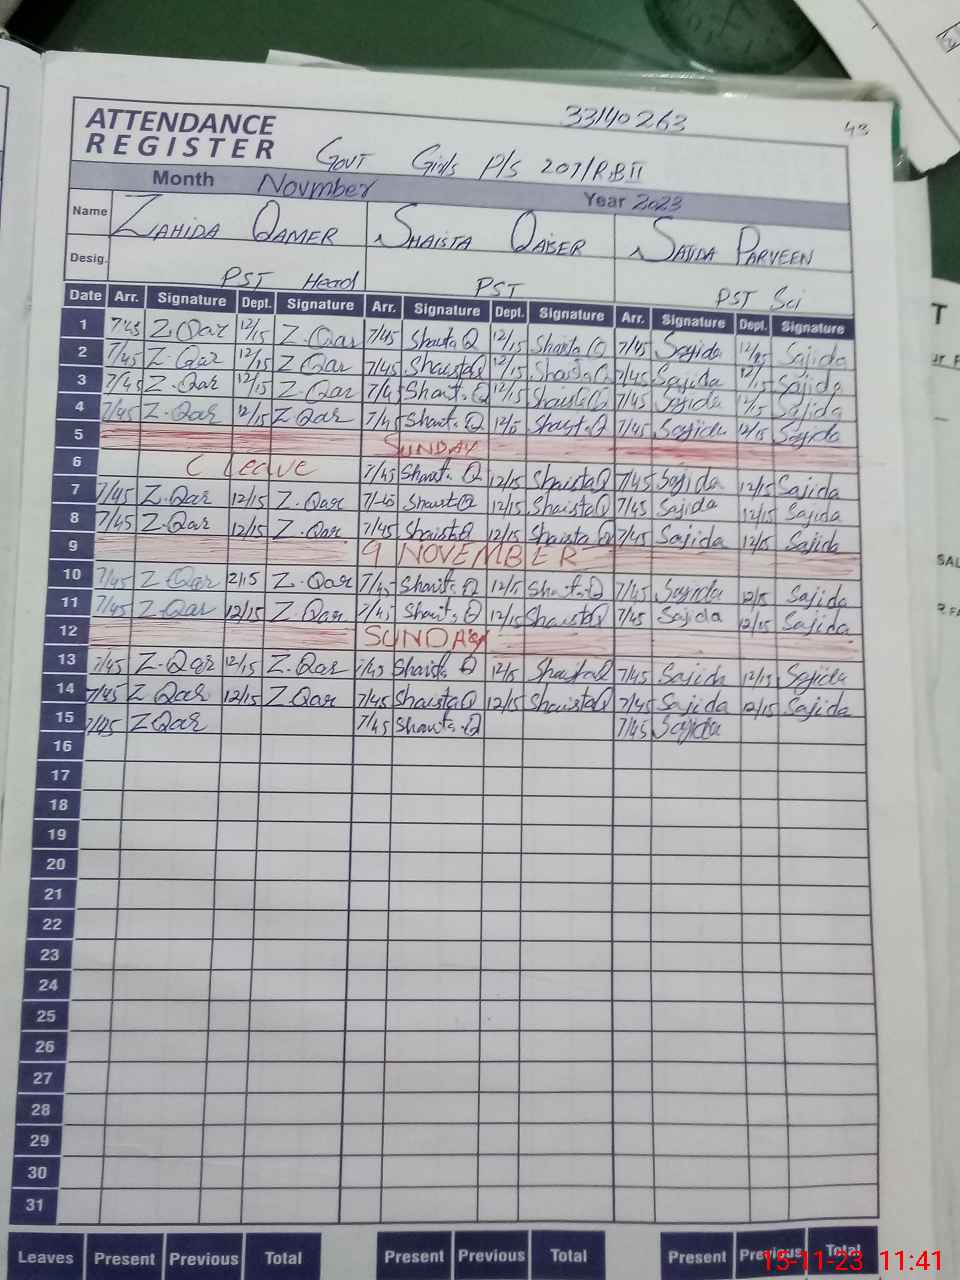 33140263
43
ATTENDANCE
REGISTER
Govt Girls P/S 207/R.B II
Month Novmber Year 2023
Name ZAHIDA QAMER SHAISTA QAISER SAJIDA PARVEEN
Desig. PST Head PST PST Sci
Date Arr. Signature Dept. Signature Arr. Signature Dept. Signature Arr. Signature Dept. Signature
1 7/45 Z.Qar 12/15 Z.Qar 7/45 Shaista Q 12/15 Shaista Q 7/45 Sajida 12/15 Sajida
2 7/45 Z.Qar 12/15 Z.Qar 7/45 Shaista Q 12/15 Shaista Q 7/45 Sajida 12/15 Sajida
3 7/45 Z.Qar 12/15 Z.Qar 7/45 Shaista Q 12/15 Shaista Q 7/45 Sajida 12/15 Sajida
4 7/45 Z.Qar 12/15 Z.Qar 7/45 Shaista Q 12/15 Shaista Q 7/45 Sajida 12/15 Sajida
5 SUNDAY
6 C leave 7/45 Shaista Q 12/15 Shaista Q 7/45 Sajida 12/15 Sajida
7 7/45 Z.Qar 12/15 Z.Qar 7/45 Shaista Q 12/15 Shaista Q 7/45 Sajida 12/15 Sajida
8 7/45 Z.Qar 12/15 Z.Qar 7/45 Shaista Q 12/15 Shaista Q 7/45 Sajida 12/15 Sajida
9 9 NOVEMBER
10 7/45 Z.Qar 12/15 Z.Qar 7/45 Shaista Q 12/15 Shaista Q 7/45 Sajida 12/15 Sajida
11 7/45 Z.Qar 12/15 Z.Qar 7/45 Shaista Q 12/15 Shaista Q 7/45 Sajida 12/15 Sajida
12 SUNDAY
13 7/45 Z.Qar 12/15 Z.Qar 7/45 Shaista Q 12/15 Shaista Q 7/45 Sajida 12/15 Sajida
14 7/45 Z.Qar 12/15 Z.Qar 7/45 Shaista Q 12/15 Shaista Q 7/45 Sajida 12/15 Sajida
15 7/45 Z.Qar 7/45 Shaista Q 7/45 Sajida
16
17
18
19
20
21
22
23
24
25
26
27
28
29
30
31
Leaves Present Previous Total Present Previous Total Present Previous Total
15-11-23 11:41